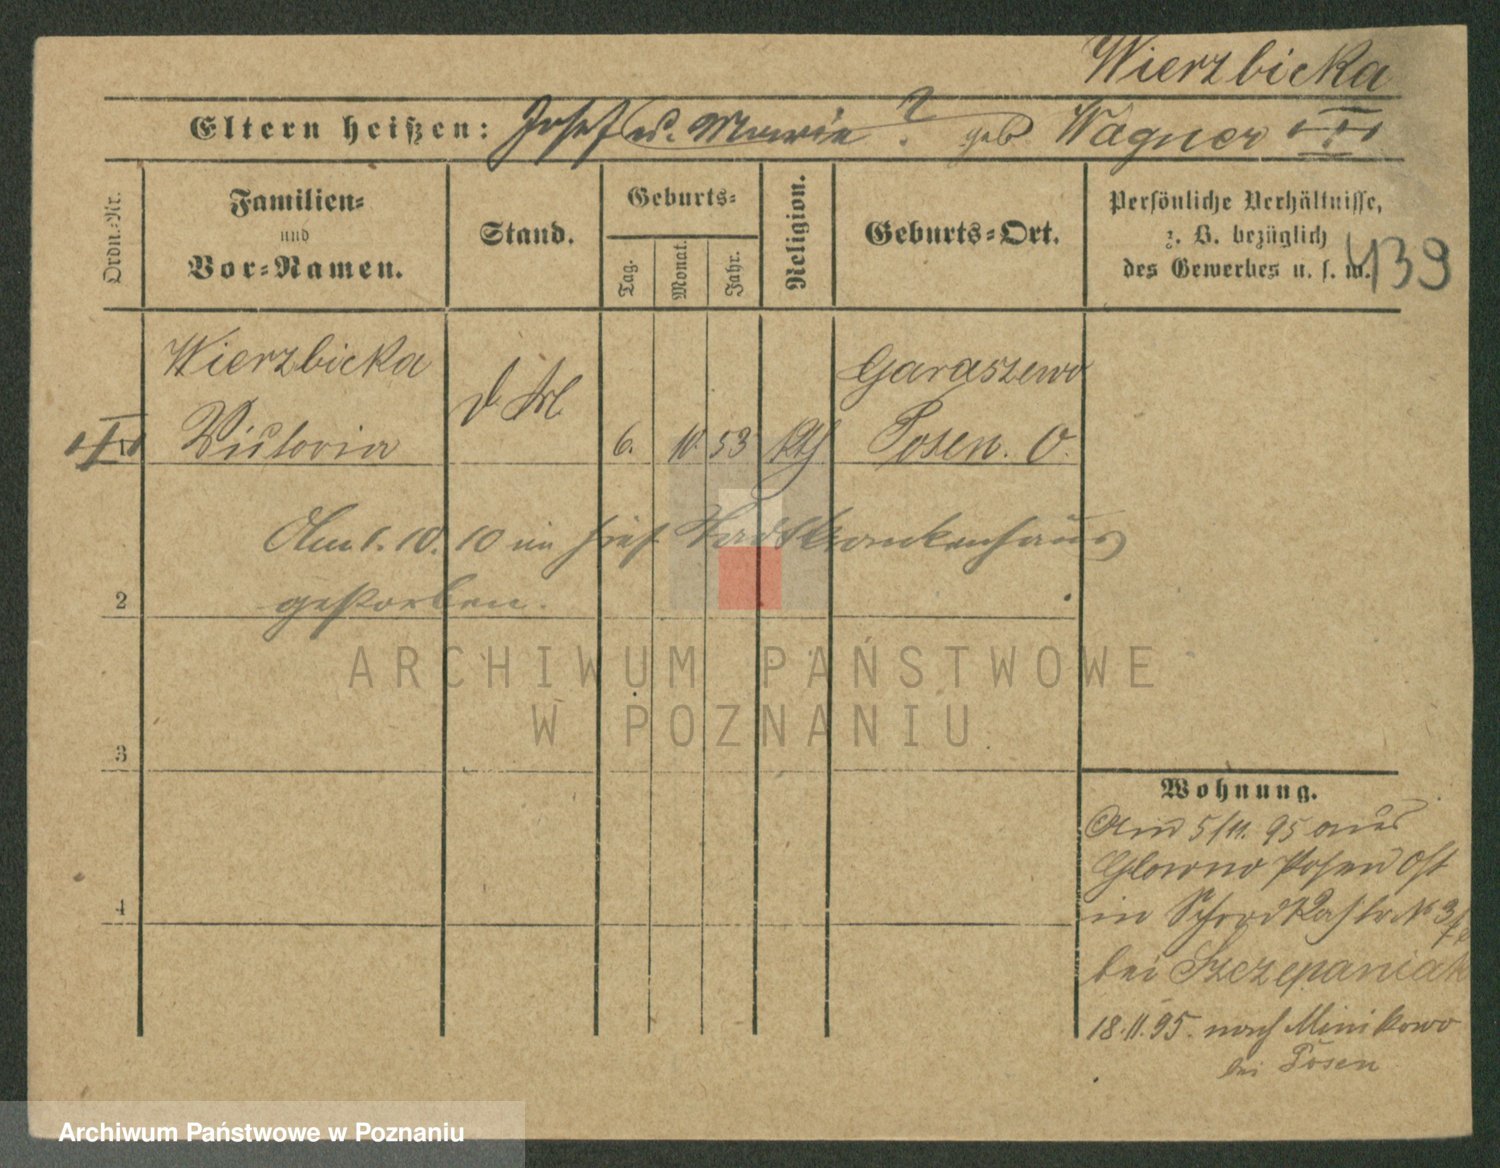 Wierzbicka
Eltern heißen: Josef u. Marie ? geb Wagner
Ordn.-Nr.
Familien-
und
Vor-Namen.
Stand.
Geburts-
Tag.
Monat.
Jahr.
Religion.
Geburts-Ort.
Persönliche Verhältnisse,
z. B. bezüglich
des Gewerbes u. s. w.
439
Wierzbicka
Victoria
6. 10. 53 Kth
Garaszewo
Posen. O.
Am 1. 10. 10 im hies. Stadtkrankenhaus
gestorben.
2
3
4
ARCHIWUM PAŃSTWOWE
W POZNANIU
Wohnung.
Am 5/11. 95 aus
Glowno Posen Ost
in
bei Szczepaniak
18. 11. 95. nach Minikowo
bei Posen
Archiwum Państwowe w Poznaniu